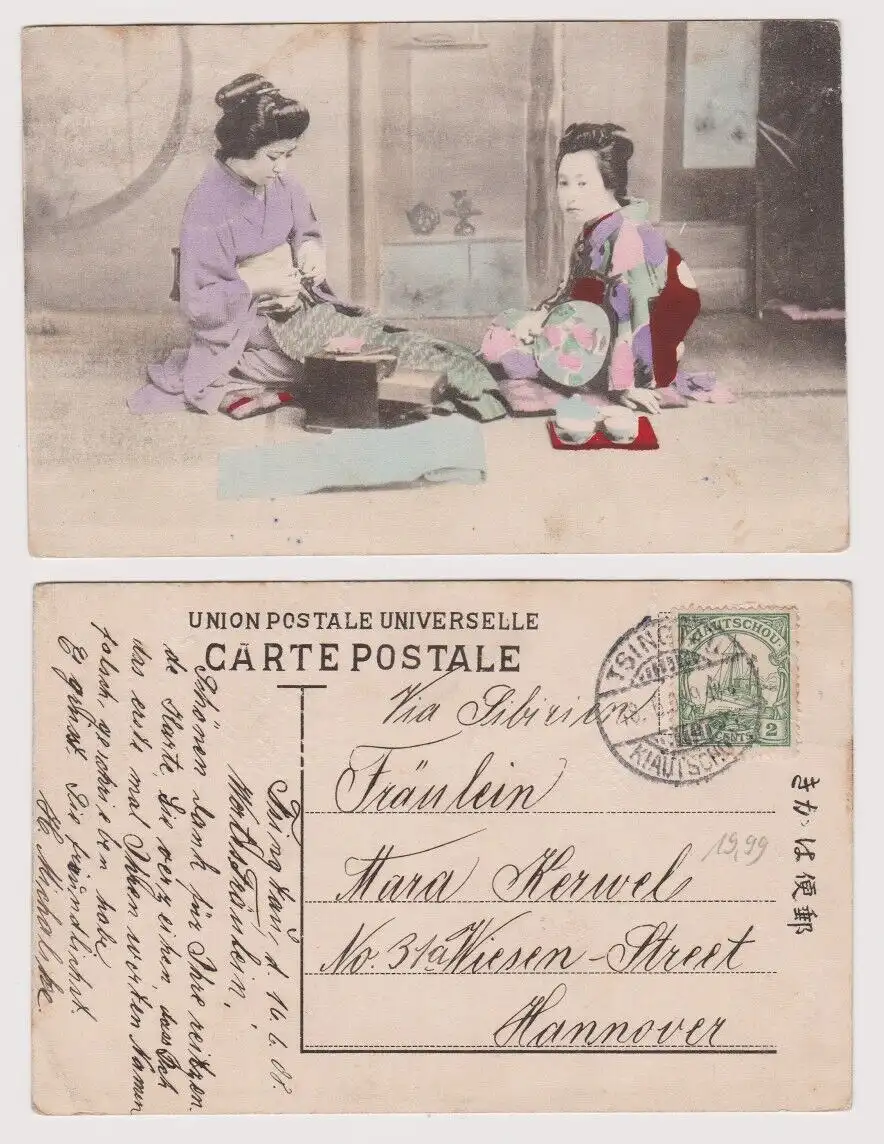 UNION POSTALE UNIVERSELLE
CARTE POSTALE
Via Sibirien
Fräulein
Mara Kerwel
No. 31a Wiesen-Street
Hannover
TSINGTAU
KIAUTSCHOU
KIAUTSCHOU
2 CENTS 2
19,99
きかは便郵
Tsingtau, d 16. 6. 08.
Wertes Fräulein,
Schönen dank für Ihre reitzen
de Karte, Sie verzeihen, dass Ich
das erste mal Ihren werten Namen
falsch geschrieben habe
Es grüsst Sie freundlichst
H. Michalske.